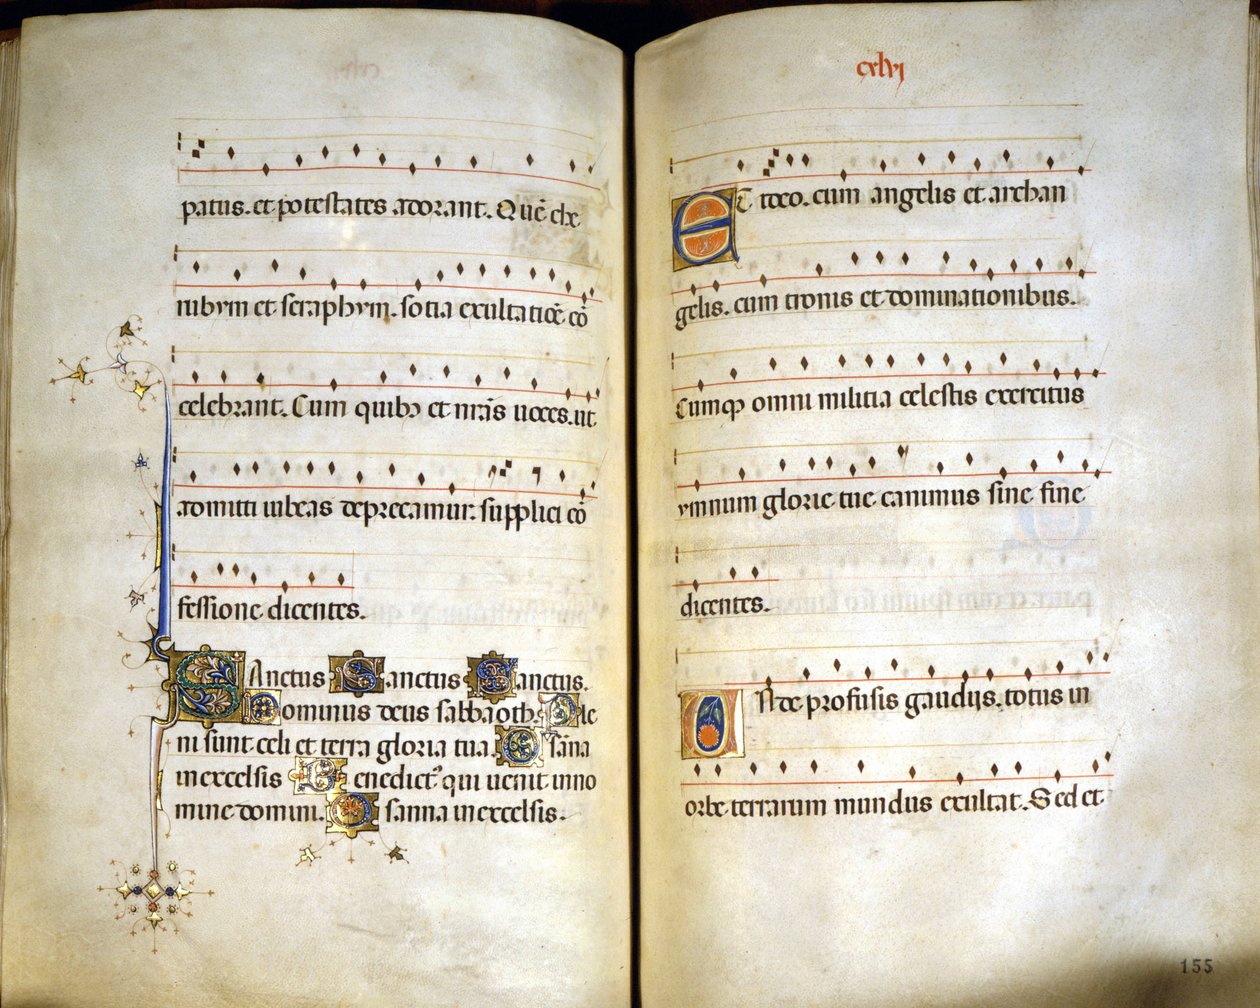 patus. et potestates adorant. Quẽ che
rubym et seraphym. sotia exultatiõe cõ
celebrant. Cum quibꝫ et nrãs uoces. ut
admitti iubeas deprecamur. supplici cõ
fessione dicentes.
Sanctus Sanctus Sanctus.
Dominus deus sabbaoth. Ple
ni sunt celi et terra gloria tua. Osãna
in excelsis Benedictꝰ qui uenit in no
mine domini. Osanna in excelsis.
cxlvj
ET ideo. cum angelis et archan
gelis. cum tronis et dominationibus.
Cumqꝫ omni militia celestis exercitus
ymnum glorie tue canimus sine fine
dicentes.
Unde profusis gaudijs. totus in
orbe terrarum mundus exultat. Sed et
155